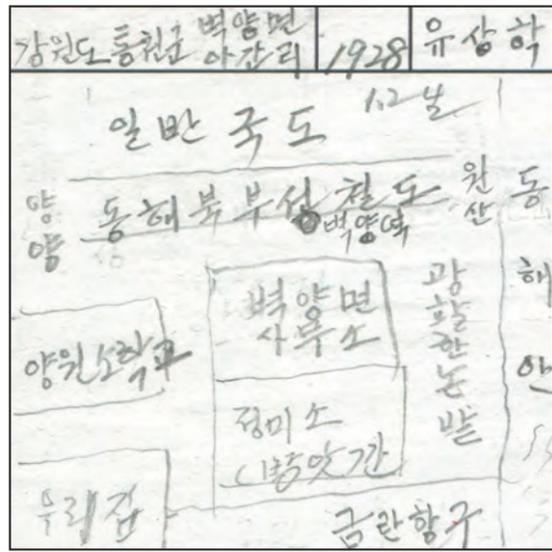 강원도통천군 벽양면
아간리
1928
유상학
일반국도
동해북부선철도
벽양역
원산
양양
동해안
벽양면
사무소
광활한논밭
양원소학교
정미소
(방앗간)
우리집
금란항구